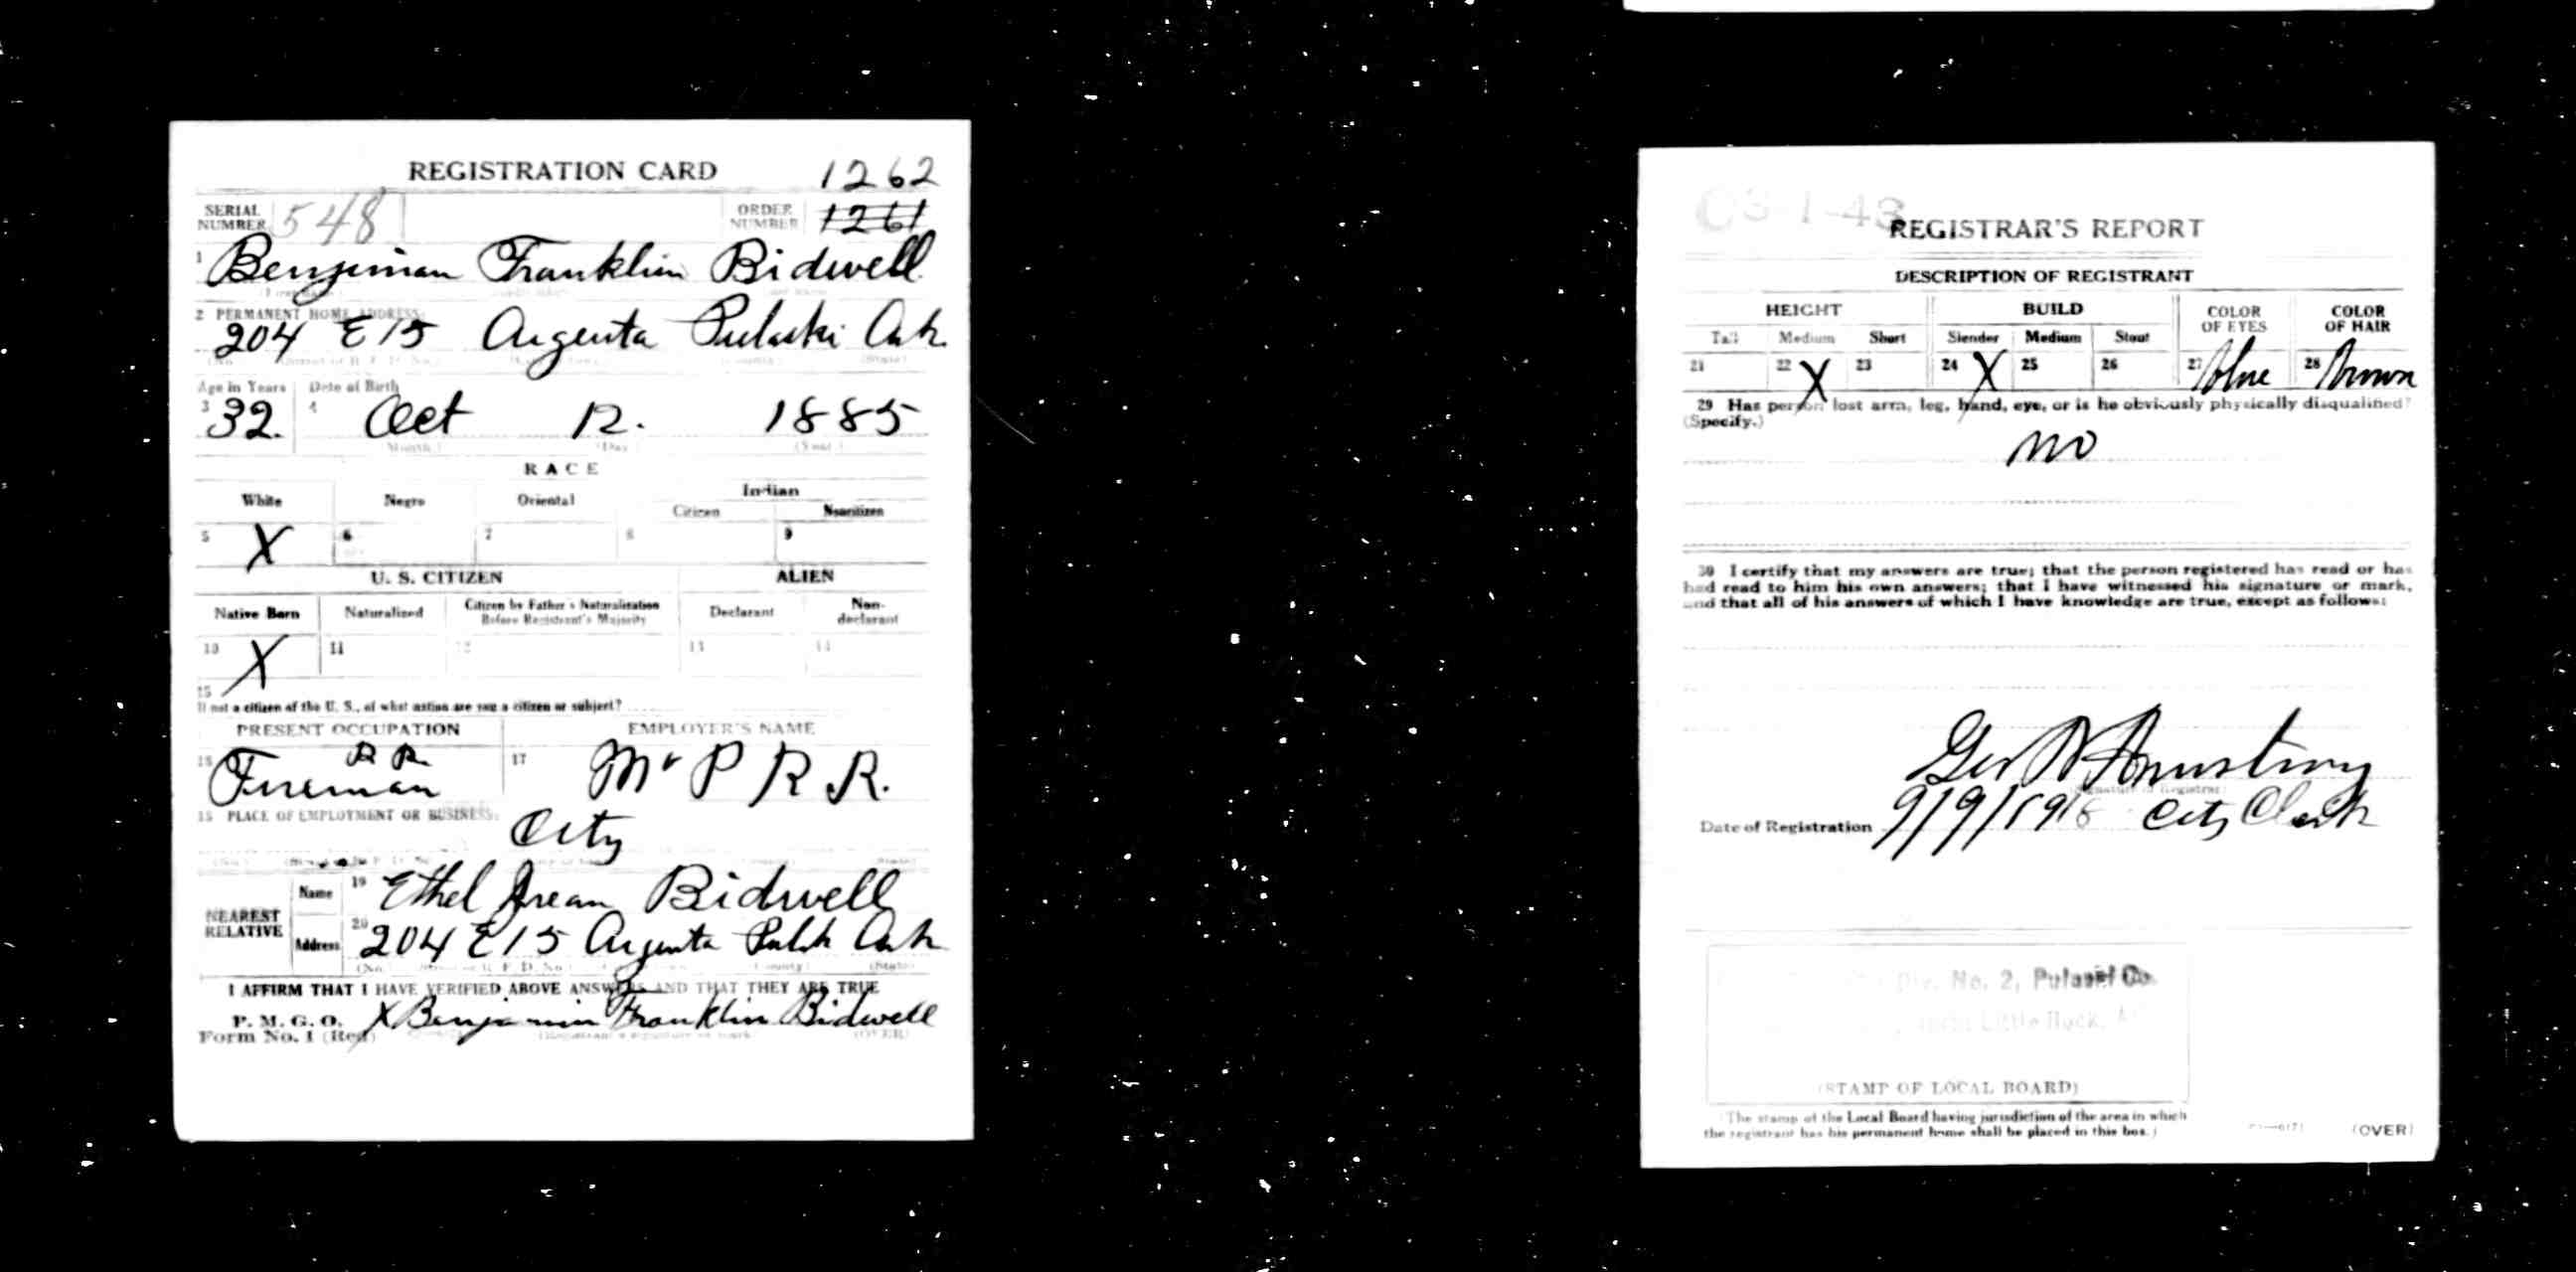 REGISTRATION CARD 1262
SERIAL NUMBER 548 ORDER NUMBER 1261
1 Benjiman Franklin Bidwell
2 PERMANENT HOME ADDRESS:
204 E 15 Argenta Pulaski Ark.
(State)
Age in Years Date of Birth
3 32. 4 Oct 12. 1885
(Month.) (Day (Year.)
RACE
White Negro Oriental Indian
Citizen Noncitizen
5 X 6 7 8 9
U. S. CITIZEN ALIEN
Native Born Naturalized Citizen by Father's Naturalization Before Registrant's Majority Declarant Non-declarant
10 X 11 12 13 14
15
If not a citizen of the U. S., of what nation are you a citizen or subject?
PRESENT OCCUPATION EMPLOYER'S NAME
16 R R 17 P R R.
Fireman
PLACE OF EMPLOYMENT OR BUSINESS:
City
NEAREST RELATIVE Name 19 Ethel Bidwell
Address 20 204 E 15 Argenta Ark
(No. R. F. D. No.) (County) (State)
I AFFIRM THAT I HAVE VERIFIED ABOVE ANSWERS AND THAT THEY ARE TRUE
P. M. G. O.
Form No. 1 (Red) X Benjamin Franklin Bidwell
(Registrant's signature or mark (OVER)
REGISTRAR'S REPORT
DESCRIPTION OF REGISTRANT
HEIGHT BUILD COLOR OF EYES COLOR OF HAIR
Tall Medium Short Slender Medium Stout
21 22 X 23 24 X 25 26 27 blue 28 Brown
29 Has person lost arm, leg, hand, eye, or is he obviously physically disqualified?
(Specify.)
no
30 I certify that my answers are true; that the person registered has read or has
had read to him his own answers; that I have witnessed his signature or mark,
and that all of his answers of which I have knowledge are true, except as follows:
Armstrong
(Signature of Registrar)
Date of Registration 9/9/1918 City Clerk
Div. No. 2, Pulaski Co.
North Little Rock,
(STAMP OF LOCAL BOARD)
(The stamp of the Local Board having jurisdiction of the area in which
the registrant has his permanent home shall be placed in this box.) (OVER)